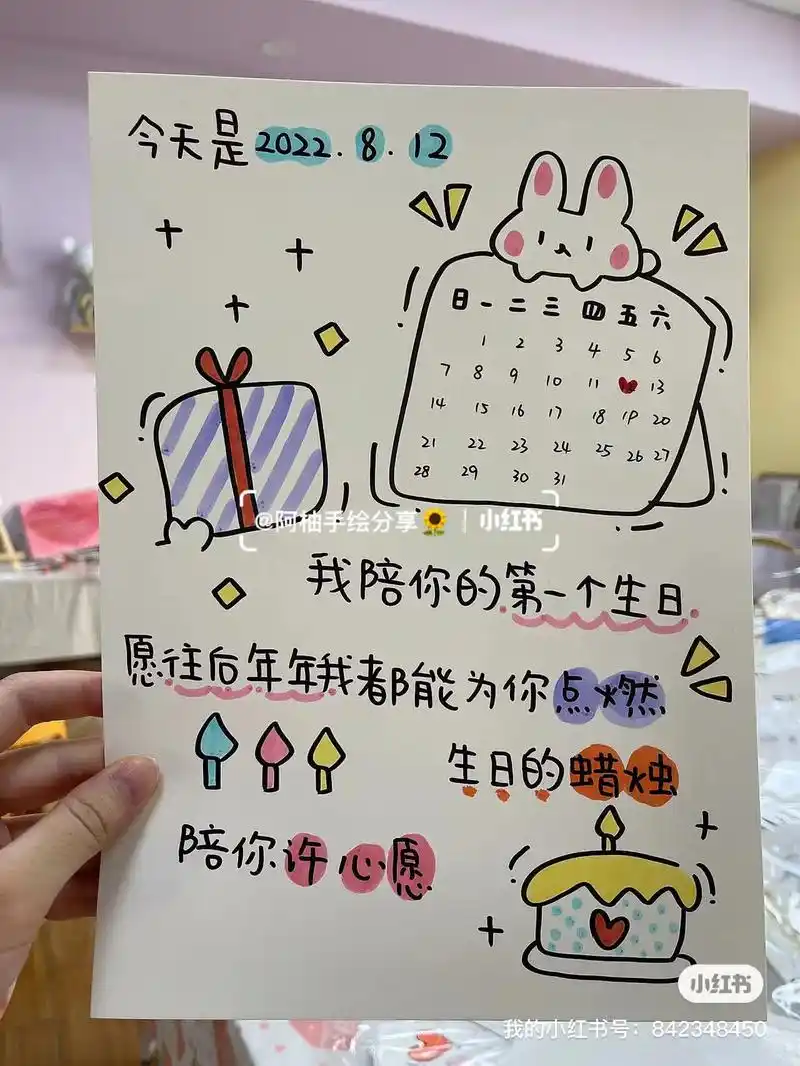 今天是2022.8.12
日一二三四五六
1 2 3 4 5 6
7 8 9 10 11 13
14 15 16 17 18 19 20
21 22 23 24 25 26 27
28 29 30 31
@阿柚手绘分享 | 小红书
我陪你的第一个生日
愿往后年年我都能为你点燃
生日的蜡烛
陪你许心愿
小红书
我的小红书号：842348450